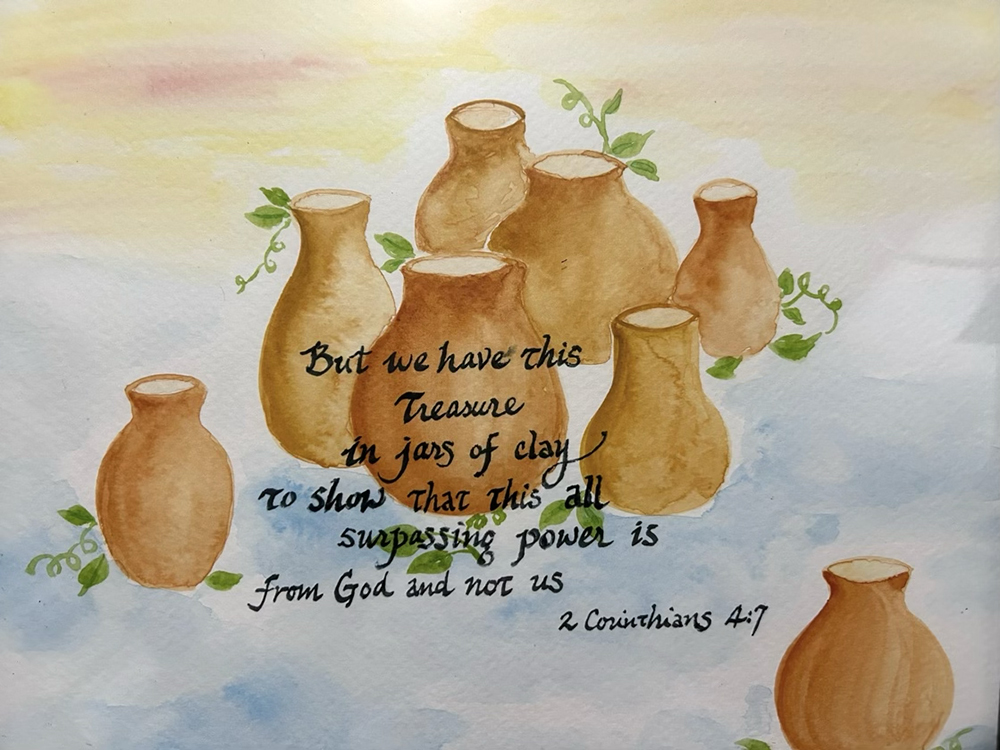 But we have this
Treasure
in jars of clay
to show that this all
surpassing power is
from God and not us
2 Corinthians 4:7